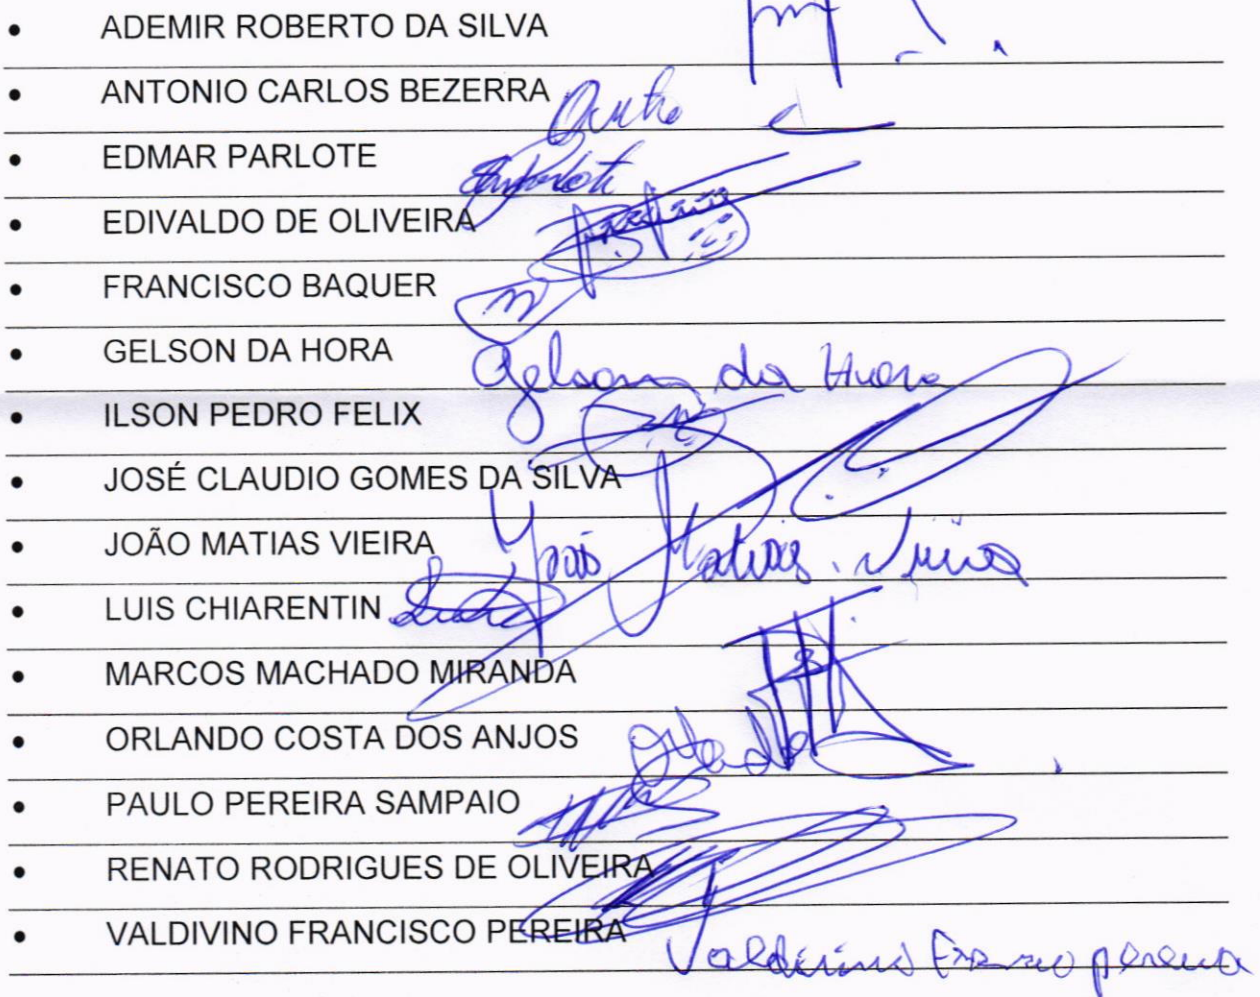 • ADEMIR ROBERTO DA SILVA
• ANTONIO CARLOS BEZERRA
• EDMAR PARLOTE
• EDIVALDO DE OLIVEIRA
• FRANCISCO BAQUER
• GELSON DA HORA Gelson da Hora
• ILSON PEDRO FELIX
• JOSÉ CLAUDIO GOMES DA SILVA
• JOÃO MATIAS VIEIRA João Matias Vieira
• LUIS CHIARENTIN
• MARCOS MACHADO MIRANDA
• ORLANDO COSTA DOS ANJOS Orlando
• PAULO PEREIRA SAMPAIO
• RENATO RODRIGUES DE OLIVEIRA
• VALDIVINO FRANCISCO PEREIRA Valdivino pereira